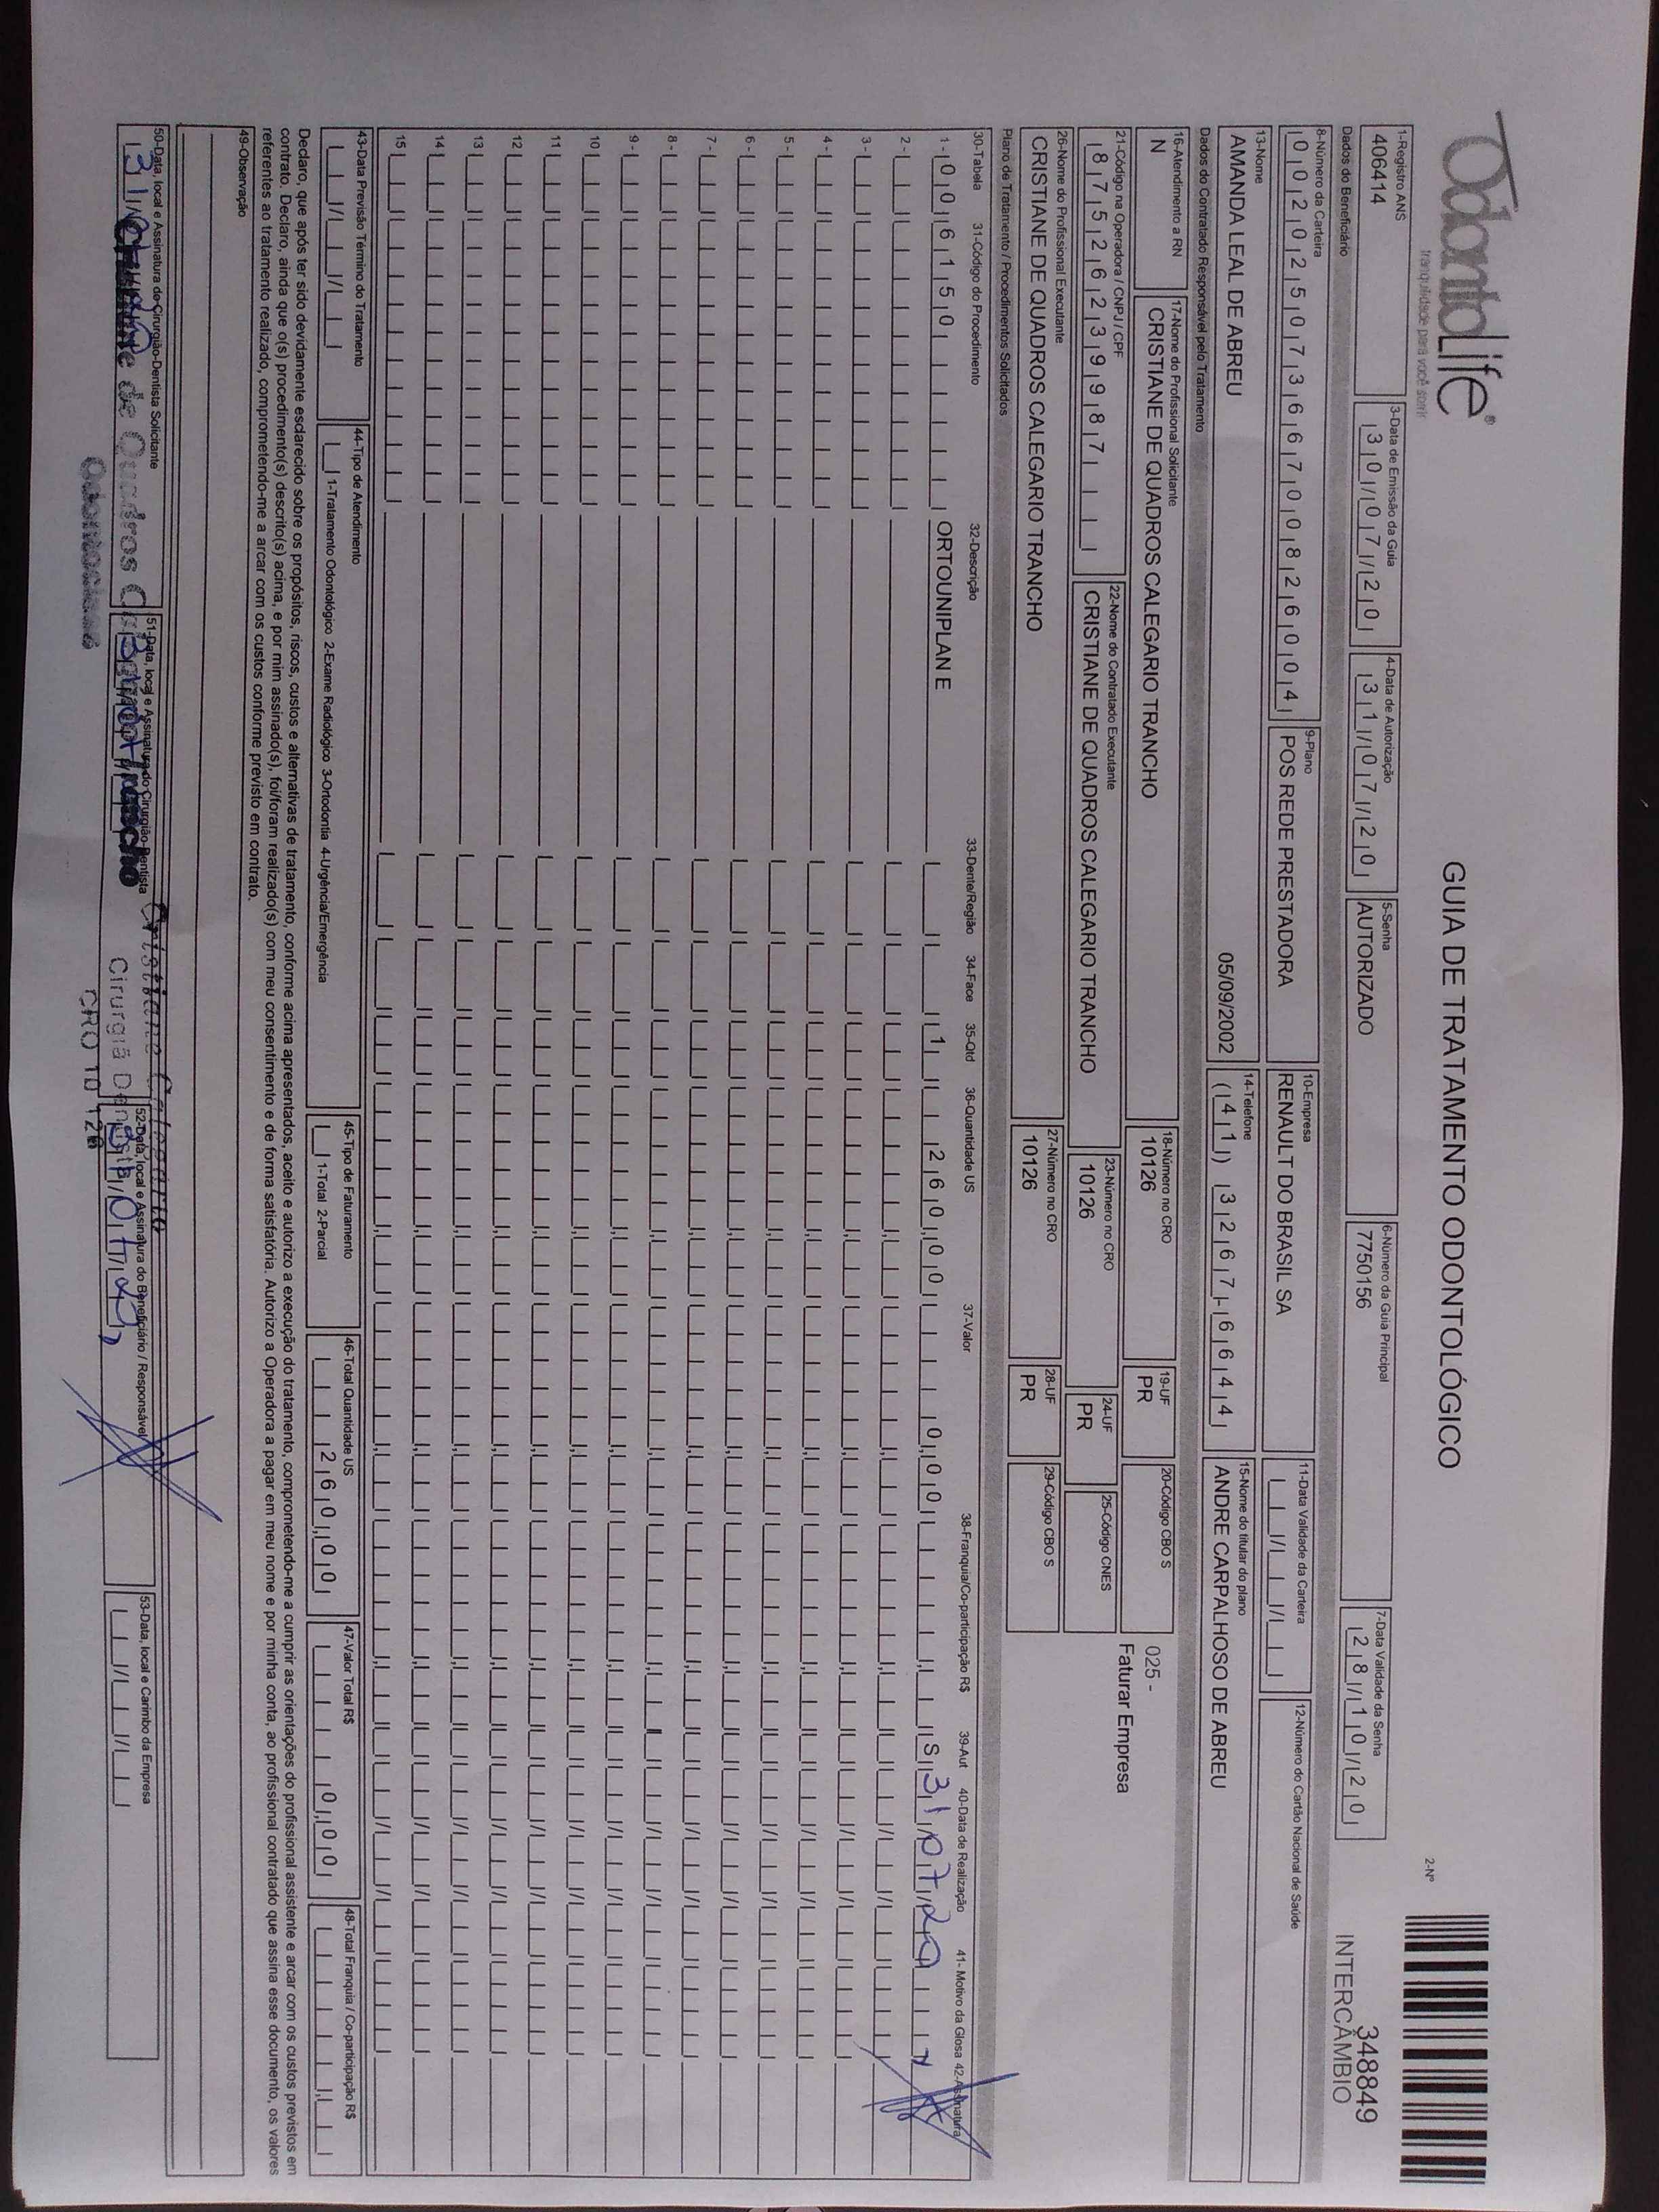 OdontoLife®
tranquilidade para você sorrir
GUIA DE TRATAMENTO ODONTOLÓGICO
2-Nº
348849
INTERCÂMBIO
1-Registro ANS
406414
3-Data de Emissão da Guia
30/07/20
4-Data de Autorização
31/07/20
5-Senha
AUTORIZADO
6-Número da Guia Principal
7750156
7-Data Validade da Senha
28/10/20
Dados do Beneficiário
8-Número da Carteira
00202507366700826004
9-Plano
POS REDE PRESTADORA
10-Empresa
RENAULT DO BRASIL SA
11-Data Validade da Carteira
12-Número do Cartão Nacional de Saúde
13-Nome
AMANDA LEAL DE ABREU
05/09/2002
14-Telefone
(41) 3267-6644
15-Nome do titular do plano
ANDRE CARPALHOSO DE ABREU
Dados do Contratado Responsável pelo Tratamento
16-Atendimento a RN
N
17-Nome do Profissional Solicitante
CRISTIANE DE QUADROS CALEGARIO TRANCHO
18-Número no CRO
10126
19-UF
PR
20-Código CBO S
025 -
Faturar Empresa
21-Código na Operadora / CNPJ / CPF
87526239987
22-Nome do Contratado Executante
CRISTIANE DE QUADROS CALEGARIO TRANCHO
23-Número no CRO
10126
24-UF
PR
25-Código CNES
26-Nome do Profissional Executante
CRISTIANE DE QUADROS CALEGARIO TRANCHO
27-Número no CRO
10126
28-UF
PR
29-Código CBO S
Plano de Tratamento / Procedimentos Solicitados
30-Tabela 31-Código do Procedimento 32-Descrição 33-Dente/Região 34-Face 35-Qtd 36-Quantidade US 37-Valor 38-Franquia/Co-participação R$ 39-Aut 40-Data de Realização 41- Motivo da Glosa 42-Assinatura
1- 00 6150 ORTOUNIPLAN E 1 260,00 0,00 S 31/07/20
2-
3-
4-
5-
6-
7-
8-
9-
10
11
12
13
14
15
43-Data Previsão Término do Tratamento
44-Tipo de Atendimento
1-Tratamento Odontológico 2-Exame Radiológico 3-Ortodontia 4-Urgência/Emergência
45-Tipo de Faturamento
1-Total 2-Parcial
46-Total Quantidade US
260,00
47-Valor Total R$
0,00
48-Total Franquia / Co-participação R$
Declaro, que após ter sido devidamente esclarecido sobre os propósitos, riscos, custos e alternativas de tratamento, conforme acima apresentados, aceito e autorizo a execução do tratamento, comprometendo-me a cumprir as orientações do profissional assistente e arcar com os custos previstos em
contrato. Declaro, ainda que o(s) procedimento(s) descrito(s) acima, e por mim assinado(s), foi/foram realizado(s) com meu consentimento e de forma satisfatória. Autorizo a Operadora a pagar em meu nome e por minha conta, ao profissional contratado que assina esse documento, os valores
referentes ao tratamento realizado, comprometendo-me a arcar com os custos conforme previsto em contrato.
49-Observação
50-Data, local e Assinatura do Cirurgião-Dentista Solicitante
51-Data, local e Assinatura do Cirurgião-Dentista
52-Data, local e Assinatura do Beneficiário / Responsável
31/07/20
53-Data, local e Carimbo da Empresa
de Quadros
Trancho
Cristiane Calegario
Cirurgiã Dentista
CRO 10 126